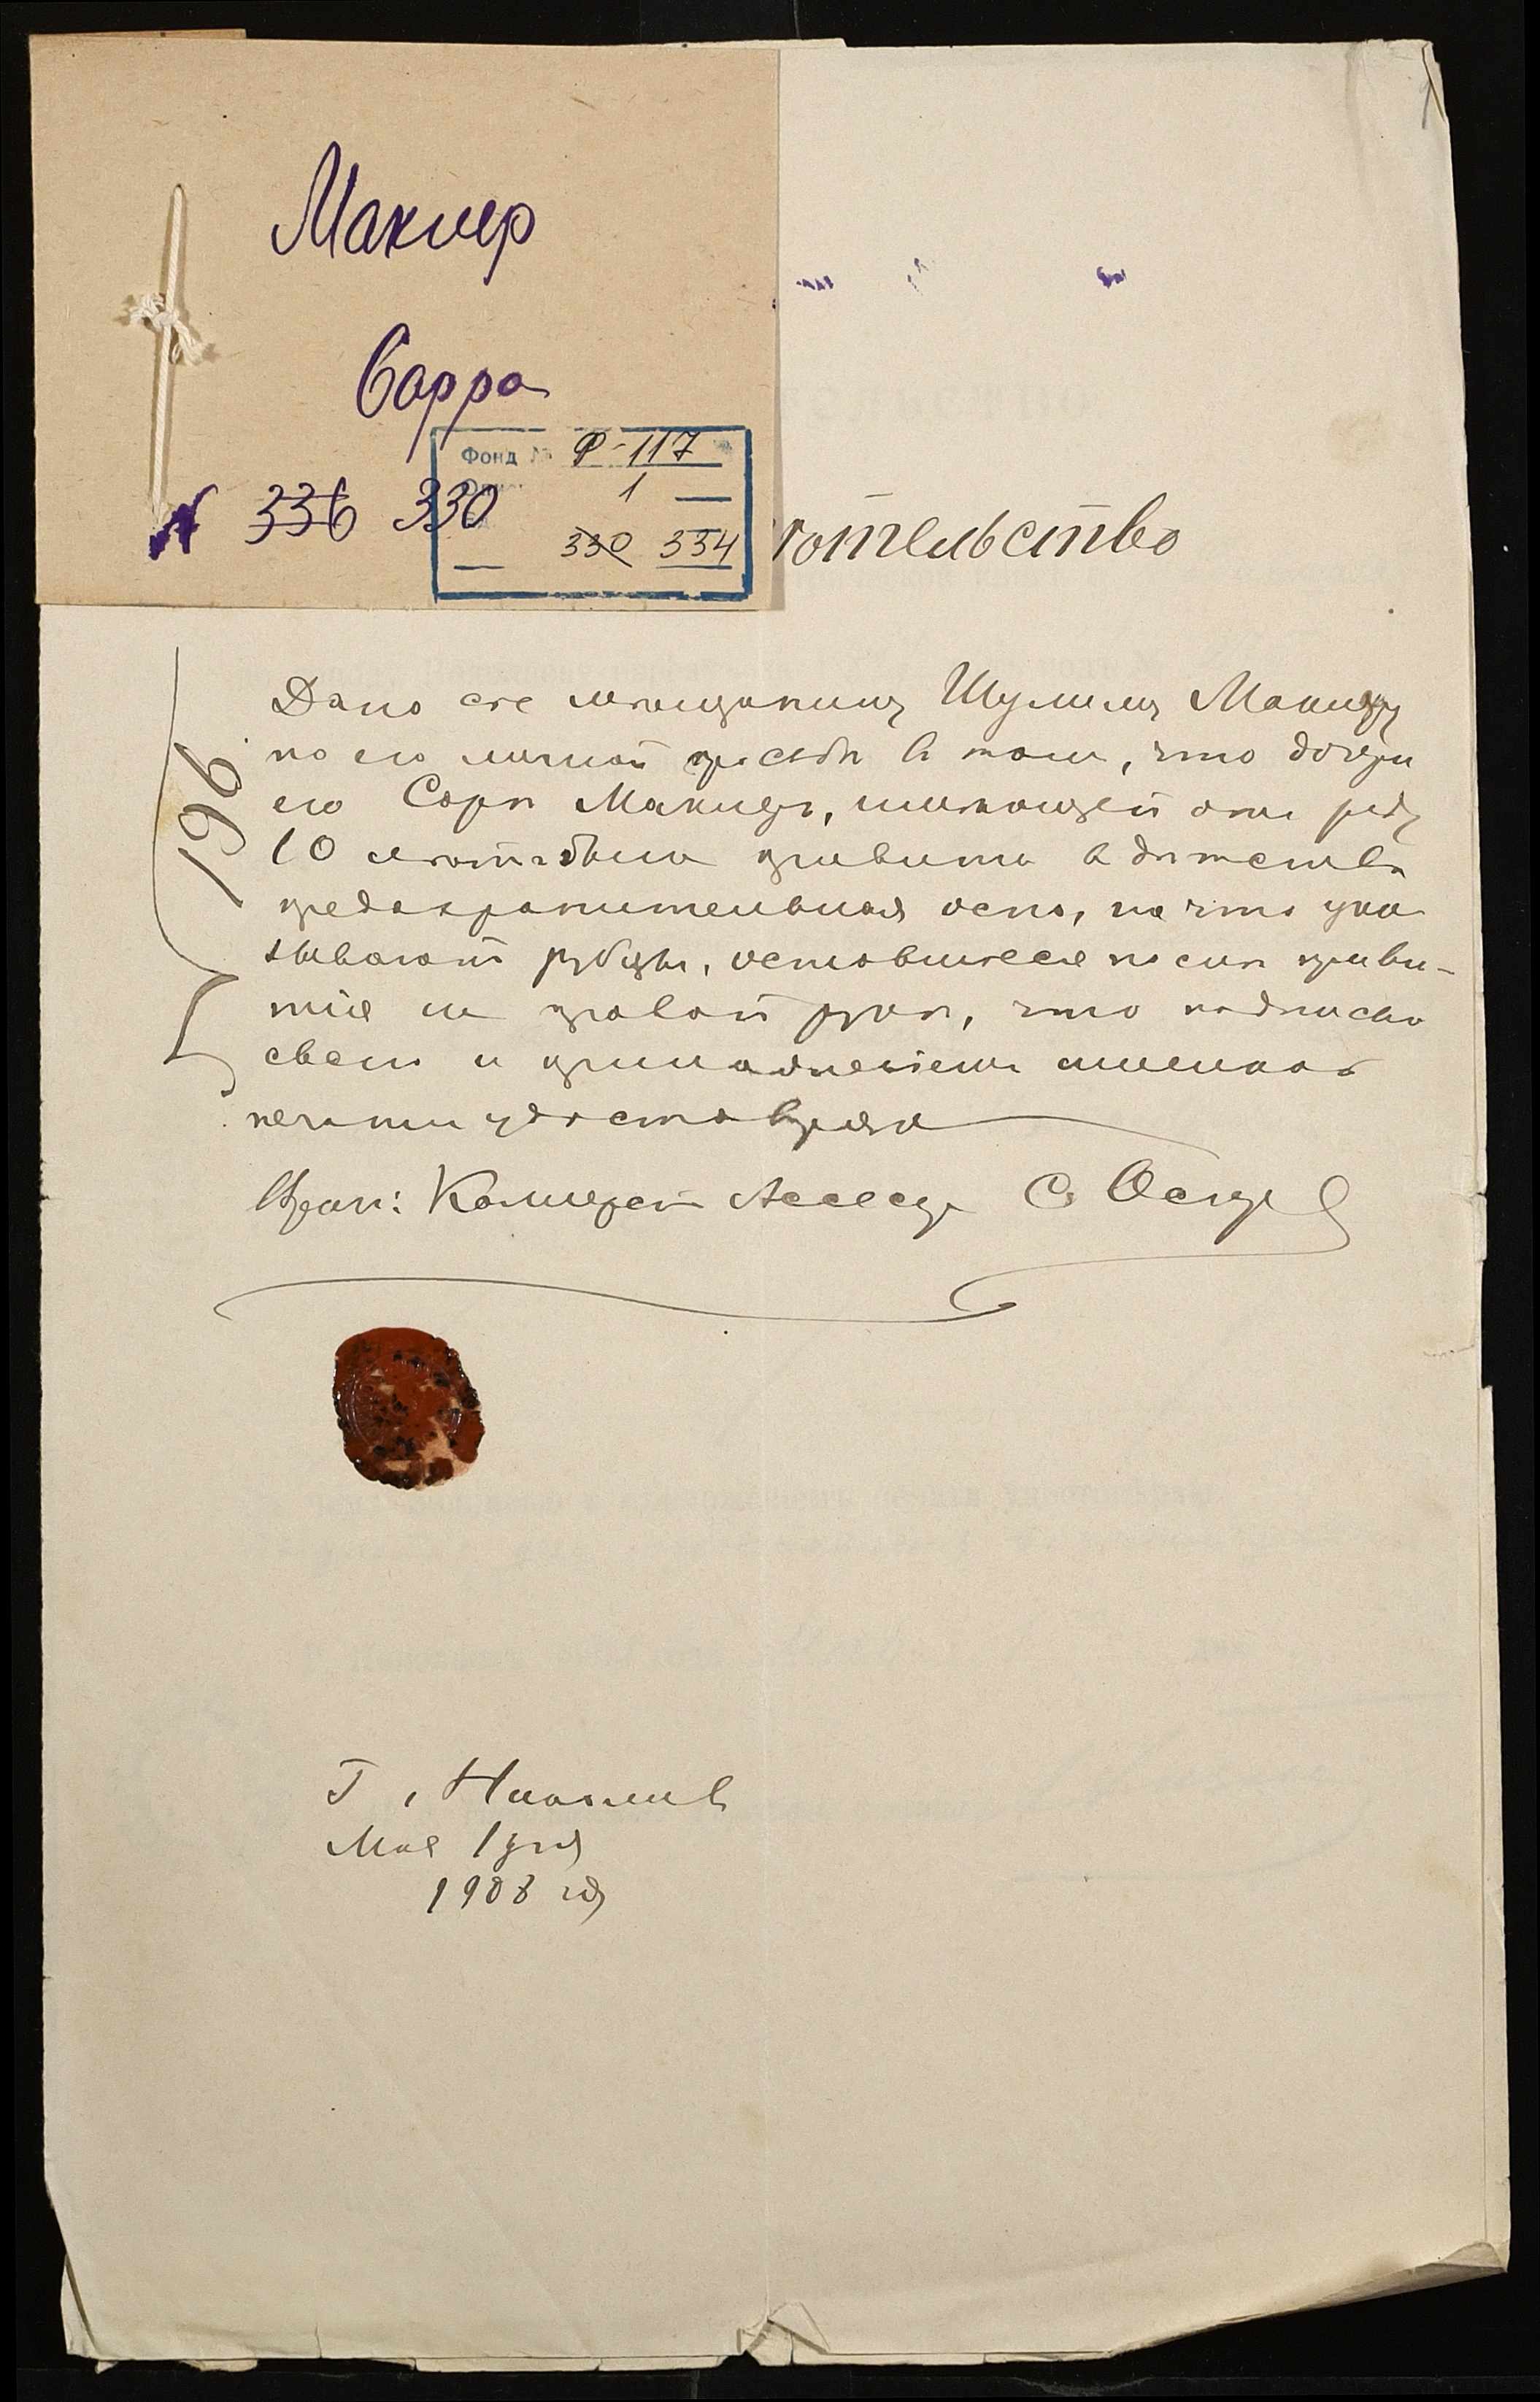 Маклер
Сарра
Фонд № Ф-117
1
№ 336 330
330 334
тотельство
196
Дано сіе мѣщанину Шулиму Маклеру
по его личной просьбѣ в том, что дочери
его Сорѣ Маклеръ, имѣющей отъ роду
10 лѣтъ была привита в дѣтствѣ
предохранительная оспа, на что ука
зываютъ рубцы, оставшіеся послѣ приви-
тія на правой рукѣ, что подписью
своею и приложеніемъ именной
печати удостовѣряю
Врач: Коллежскій Асессор С.
Г. Николаев
Мая 1 дня
1908 год